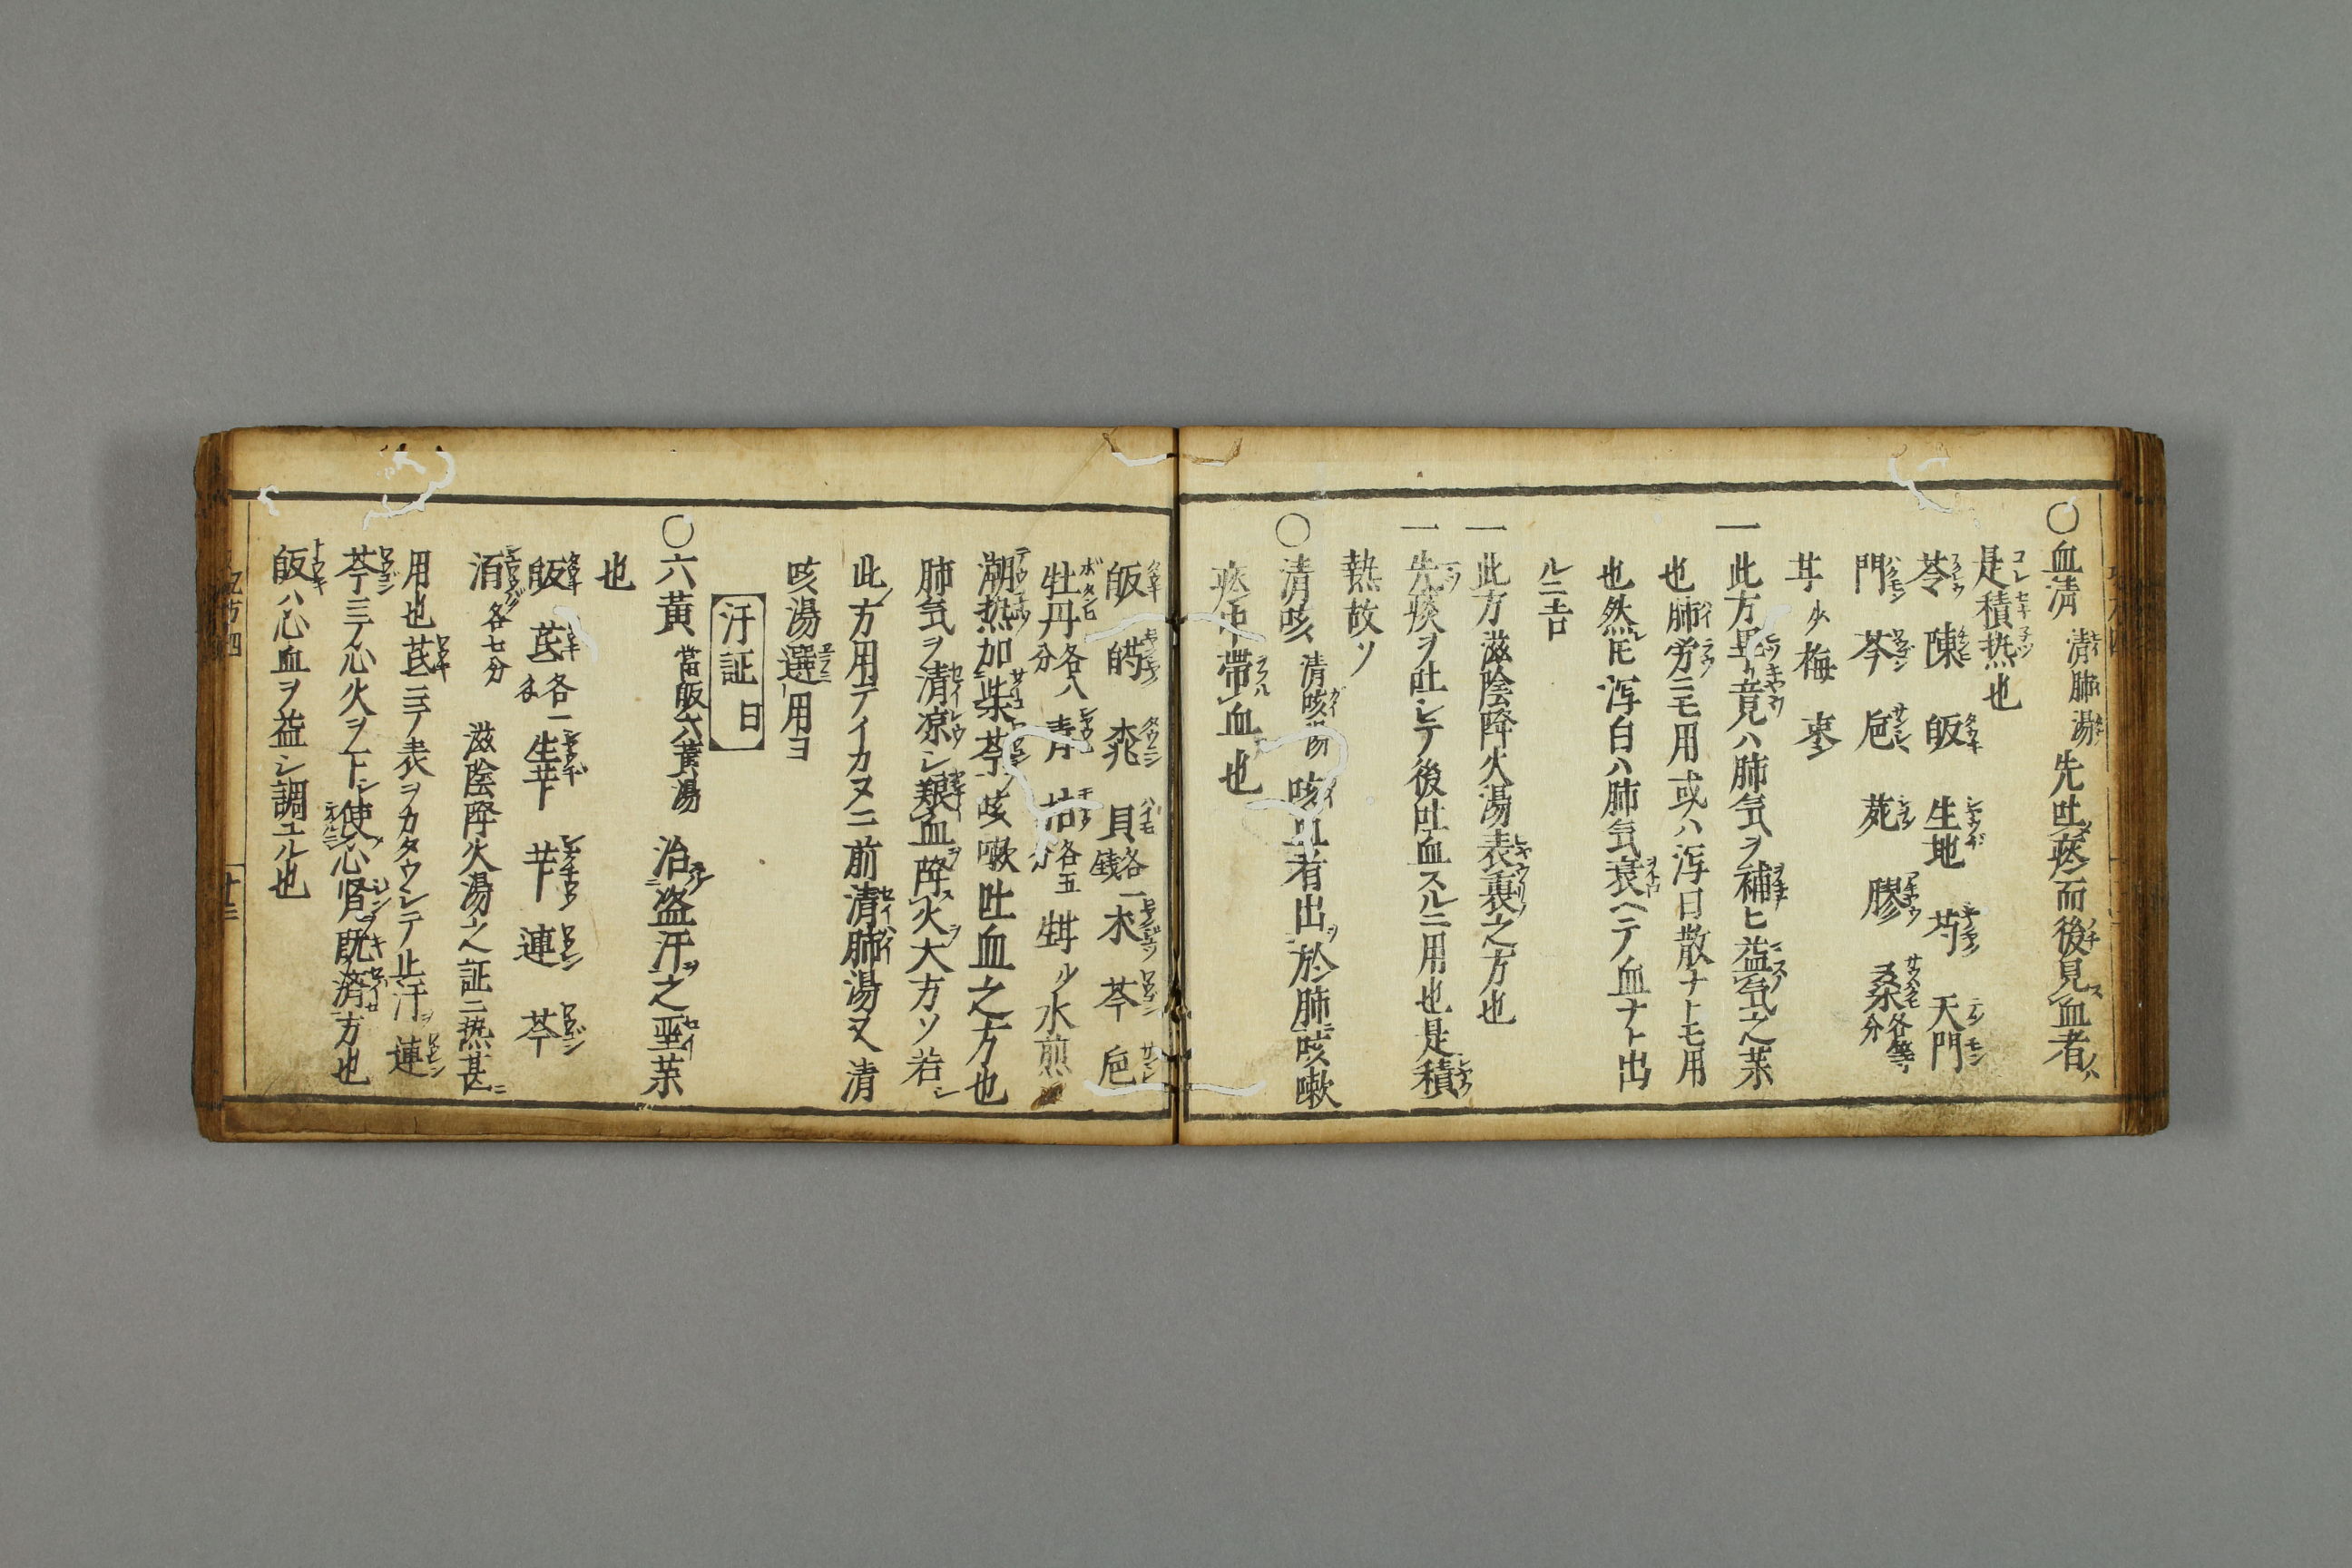 〇血清 清肺湯 先吐痰而後見血者ハ
是積热也
苓 陳 皈 生地 芍 天門
門 芩 卮 菀 膠 桑各等分
甘少 梅 棗
一此方畢竟ハ肺気ヲ補ヒ益気之藥
也肺労ニモ用或ハ泻白散ナトモ用
也然𪜈泻白ハ肺気衰ヘテ血ナト出
ルニ吉
一此方滋陰降火湯表裏之方也
一先痰ヲ吐シテ後吐血スルニ用也是積
熱故ソ
〇清咳 清咳湯 咳血者出於肺咳嗽
痰中帶血也
皈 芍 桃 貝各一錢 木 芩 卮
牡丹各八分 青 桔各五分 甘少水煎
潮热加柴芩 咳嗽吐血之方也
肺気ヲ清凉シ 血降火大方ソ若シ
此方用テイカヌニ前清肺湯又清
咳湯選用ヨ
汗証 日
〇六黄 當皈六黄湯 治盗汗之聖藥
也
皈 芪各一 生芐 芐 連 芩
栢各七分 滋陰降火湯之証ニ热甚ニ
用也芪ニテ表ヲカタウシテ止汗連
芩ニテ心火ヲ下シ使心腎既濟方也
皈ハ心血ヲ益シ調ユル也
十三